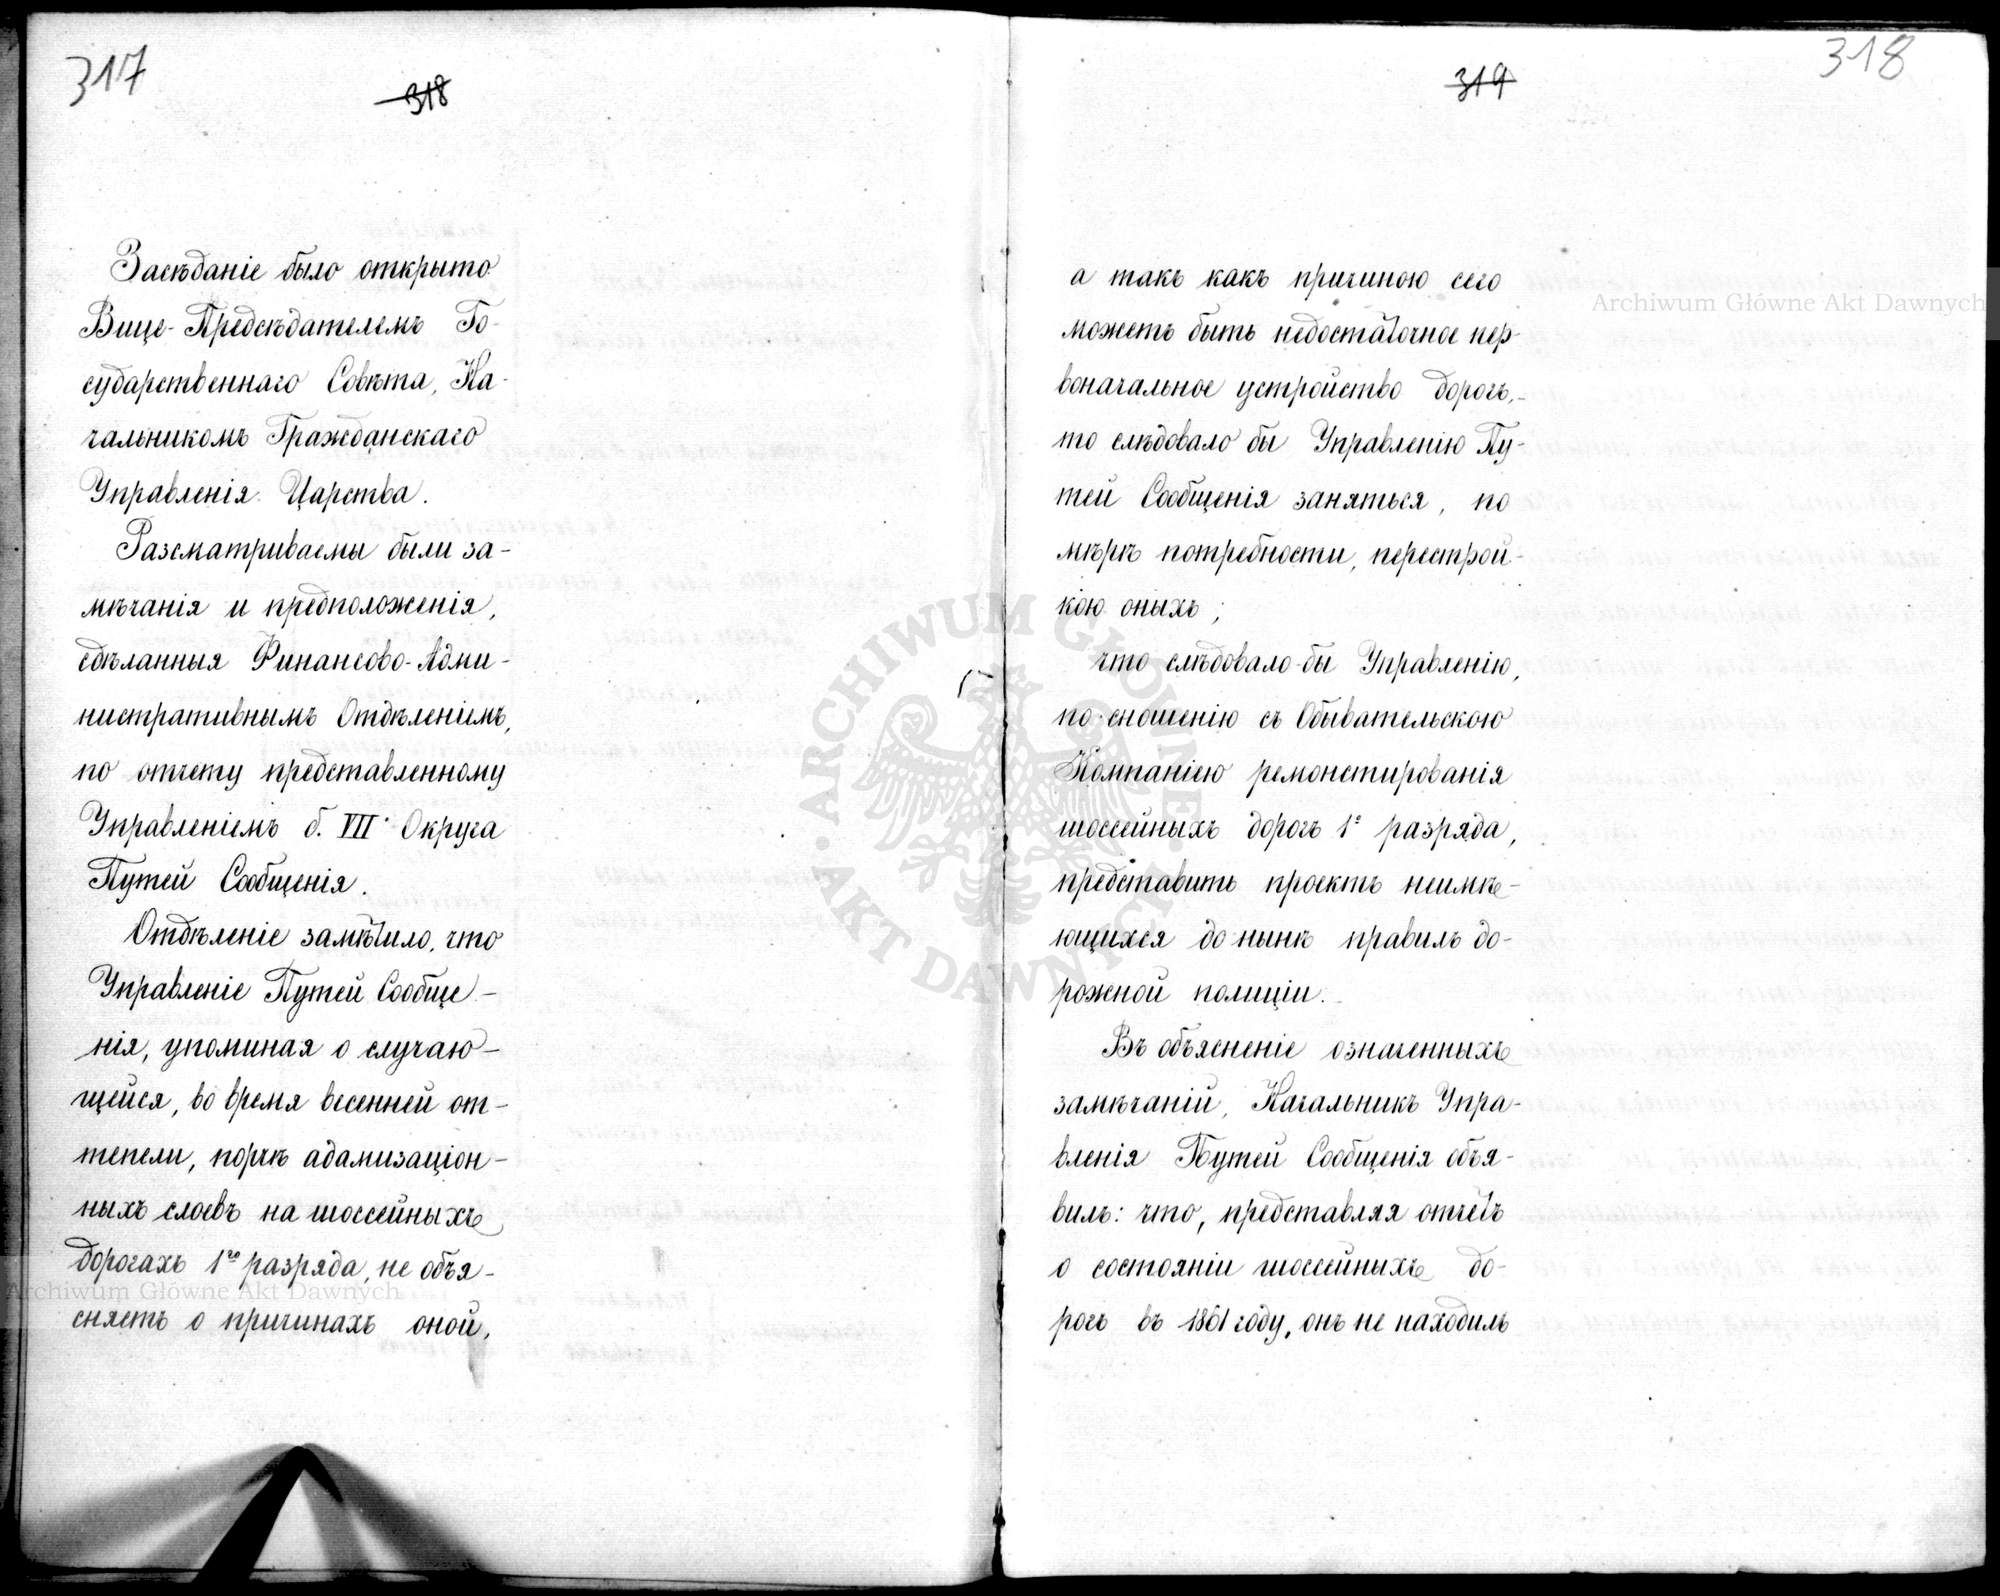 317
318
Засѣданіе было открыто
Вице-Предсѣдателемъ Го-
сударственнаго Совѣта, На-
чальникомъ Гражданскаго
Управленія Царства.
Разсматриваемы были за-
мѣчанія и предположенія,
сдѣланныя Финансово-Адми-
нистративнымъ Отдѣленіемъ,
по отчету представленному
Управленіемъ б. VII Округа
Путей Сообщенія.
Отдѣленіе замѣтило, что
Управленіе Путей Сообще-
нія, упоминая о случаю-
щейся, во время весенней от-
тепели, порчѣ адамизаціон-
ныхъ слоевъ на шоссейныхъ
дорогахъ 1го разряда, не объя-
сняетъ о причинахъ оной,
Archiwum Główne Akt Dawnych
319
318
а такъ какъ причиною сего
можетъ быть недостаточное пер-
воначальное устройство дорогъ,-
то слѣдовало бы Управленію Пу-
тей Сообщенія заняться, по
мѣрѣ потребности, перестрой-
кою оныхъ;
что слѣдовало-бы Управленію,
по сношенію съ Обывательскою
Компаніею ремонстированія
шоссейныхъ дорогъ 1го разряда,
представить проектъ неимѣ-
ющихся до нынѣ правилъ до-
рожной полиціи.
Въ объясненіе означенныхъ
замѣчаній, Начальникъ Упра-
вленія Путей Сообщенія объя-
вилъ: что, представляя отчетъ
о состояніи шоссейныхъ до-
рогъ въ 1861 году, онъ не находилъ
Archiwum Główne Akt Dawnych
ARCHIWUM GŁÓWNE AKT DAWNYCH